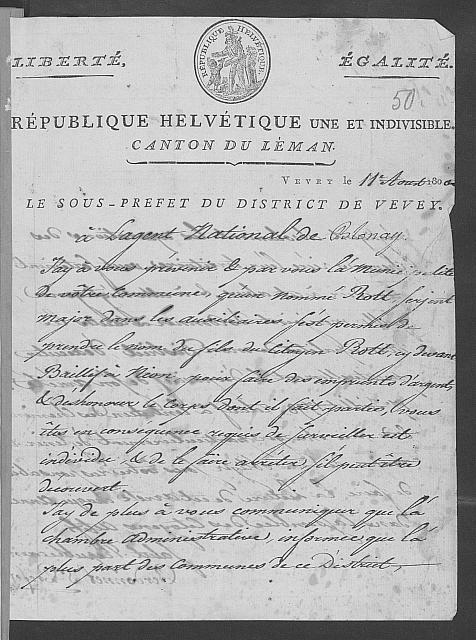 RÉPUBLIQUE HELVÉTIQUE
LIBERTÉ, ÉGALITÉ.
50.
RÉPUBLIQUE HELVÉTIQUE UNE ET INDIVISIBLE.
CANTON DU LÉMAN.
VEVEY le 11e Aoust 180
LE SOUS-PREFET DU DISTRICT DE VEVEY.
à L'agent National de Blonay.
J'ay à vous prévenir & par vous la Municipalité
de vôtre Commune, qu'un nommé Rott, serjent
major dans les auxiliaires, s'est permis de
prendre le nom de fils du Citoyen Rott, cy devant
Baillif à Nion, pour faire des emprunts d'argents
& deshonorer le Corps dont il fait partie, vous
êtes en consequence requis de surveiller cet
individu, & de le faire arrêter, s'il peut être
decouvert.
J'ay de plus à vous communiquer que la
chambre administrative, informée que la
plus part des Communes de ce District,